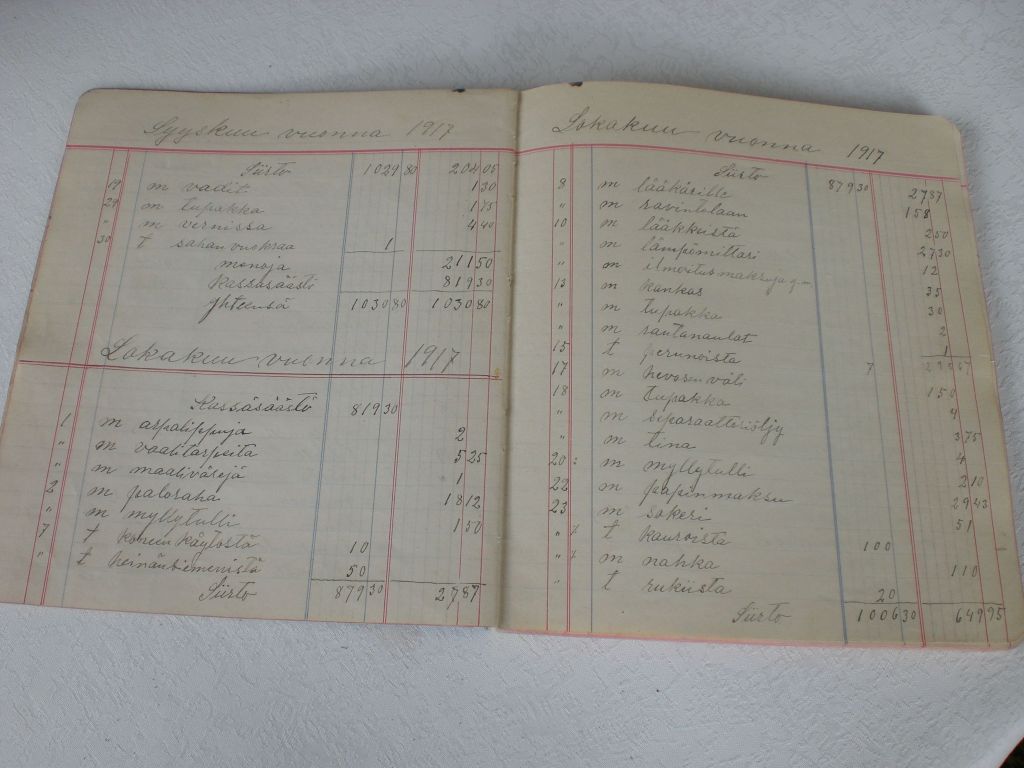 Syyskuu vuonna 1917
Siirto 1029 80 204 05
19 m vadit 1 30
29 m tupakka 1 75
" m vernissa 4 40
30 t sahan vuokraa 1
menoja 211 50
Kassasäästö 819 30
Yhteensä 1030 80 1030 80
Lokakuu vuonna 1917
Kassasäästö 819 30
1 m arpalippuja 2
" m vaalitarpeita 5 25
" m maalivärejä 1
2 m paloraha 18 12
" m myllytulli 1 50
7 t koneen käytöstä 10
" t heinänsiemenistä 50
Siirto 879 30 27 87
Lokakuu vuonna 1917
Siirto 879 30 27 87
8 m lääkärille 158
" m ravintolaan 2 50
10 m lääkkeistä 27 30
" m lämpömittari 12
" m ilmoitusmaksuja 35
13 m kankas 30
" m tupakka 2
" m rautanaulat 1
15 t perunoista 7
17 m hevosen väli 1 50
18 m tupakka 4
" m siparaattoriöljy 3 75
" m tina 4
20 m myllytulli 2 10
22 m papinmaksu 29 43
23 m sokeri 51
" t kauroista 100
" m nahka 110
" t rukiista 20
Siirto 1006 30 649 95